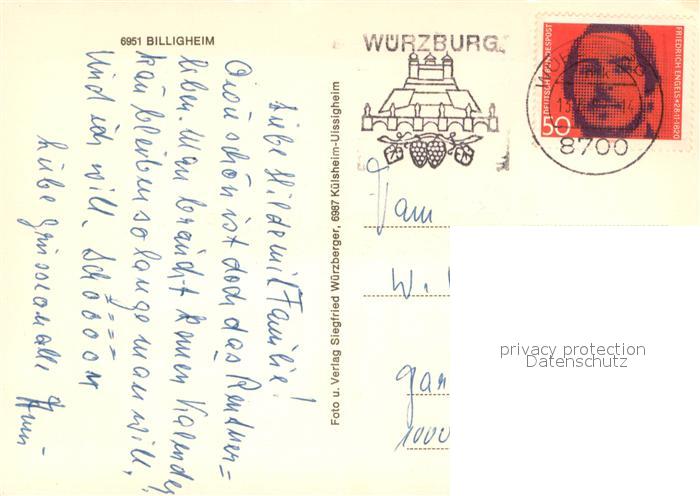 6951 BILLIGHEIM
Liebe Hilde mit Familie!
O wie schön ist doch das Rentner=
leben. Man braucht keinen Kalender
kan bleiben so lange man will,
Und ich will. Schoooon
Liebe Grüsse an alle
Foto u. Verlag Siegfried Würzberger, 6987 Külsheim-Uissigheim
WÜRZBURG
8700
DEUTSCHE BUNDESPOST
50
FRIEDRICH ENGELS * 28·11·1820
Fam
W.
1000
privacy protection
Datenschutz